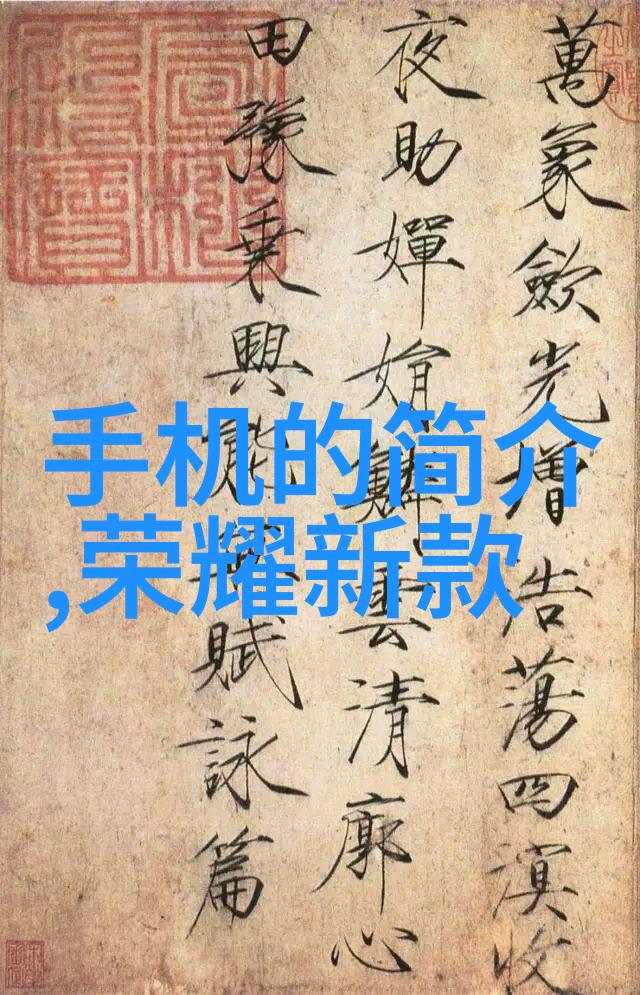 萬象歛光增浩蕩四溟收
夜助嬋娟鱗雲清廓心
田豫乘興能賦詠篇
手机的简介
,荣耀新款